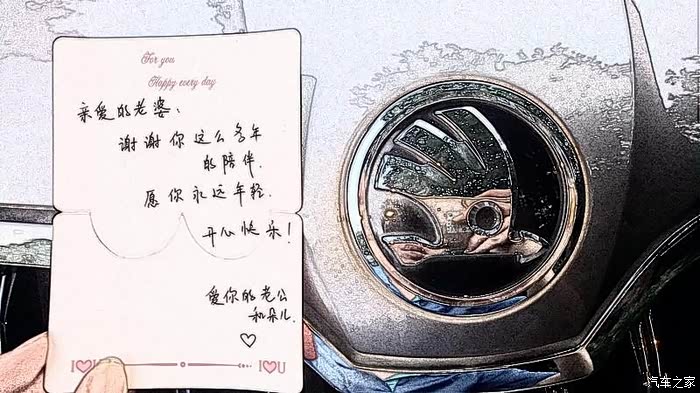 For you
Happy every day
亲爱的老婆、
谢谢你这么多年
的陪伴.
愿你永远年轻.
开心快乐!
爱你的老公
和朵儿.
♡
I♡U
I♡U
汽车之家